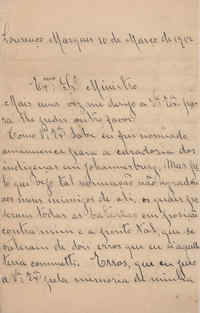 Lourenço Marques 10 de Março de 1902
Exmo Sr. Ministro
Mais uma vez me dirijo a V. Exa pa
ra lhe pedir outro favor.
Como V. Exa sabe eu fui nomeado
amanuense para a curadoria dos
indigenas em Johannesburg. Mas pe
lo que vejo tal nomeação não agradou
aos meus inimigos de ali, os quaes as
seram todas as baterias em
contra mim e a ponto tal, que se
valeram de dois erros que eu n'aquella
terra commetti. Erros, que eu juro
a V. Exa pela memoria de minha